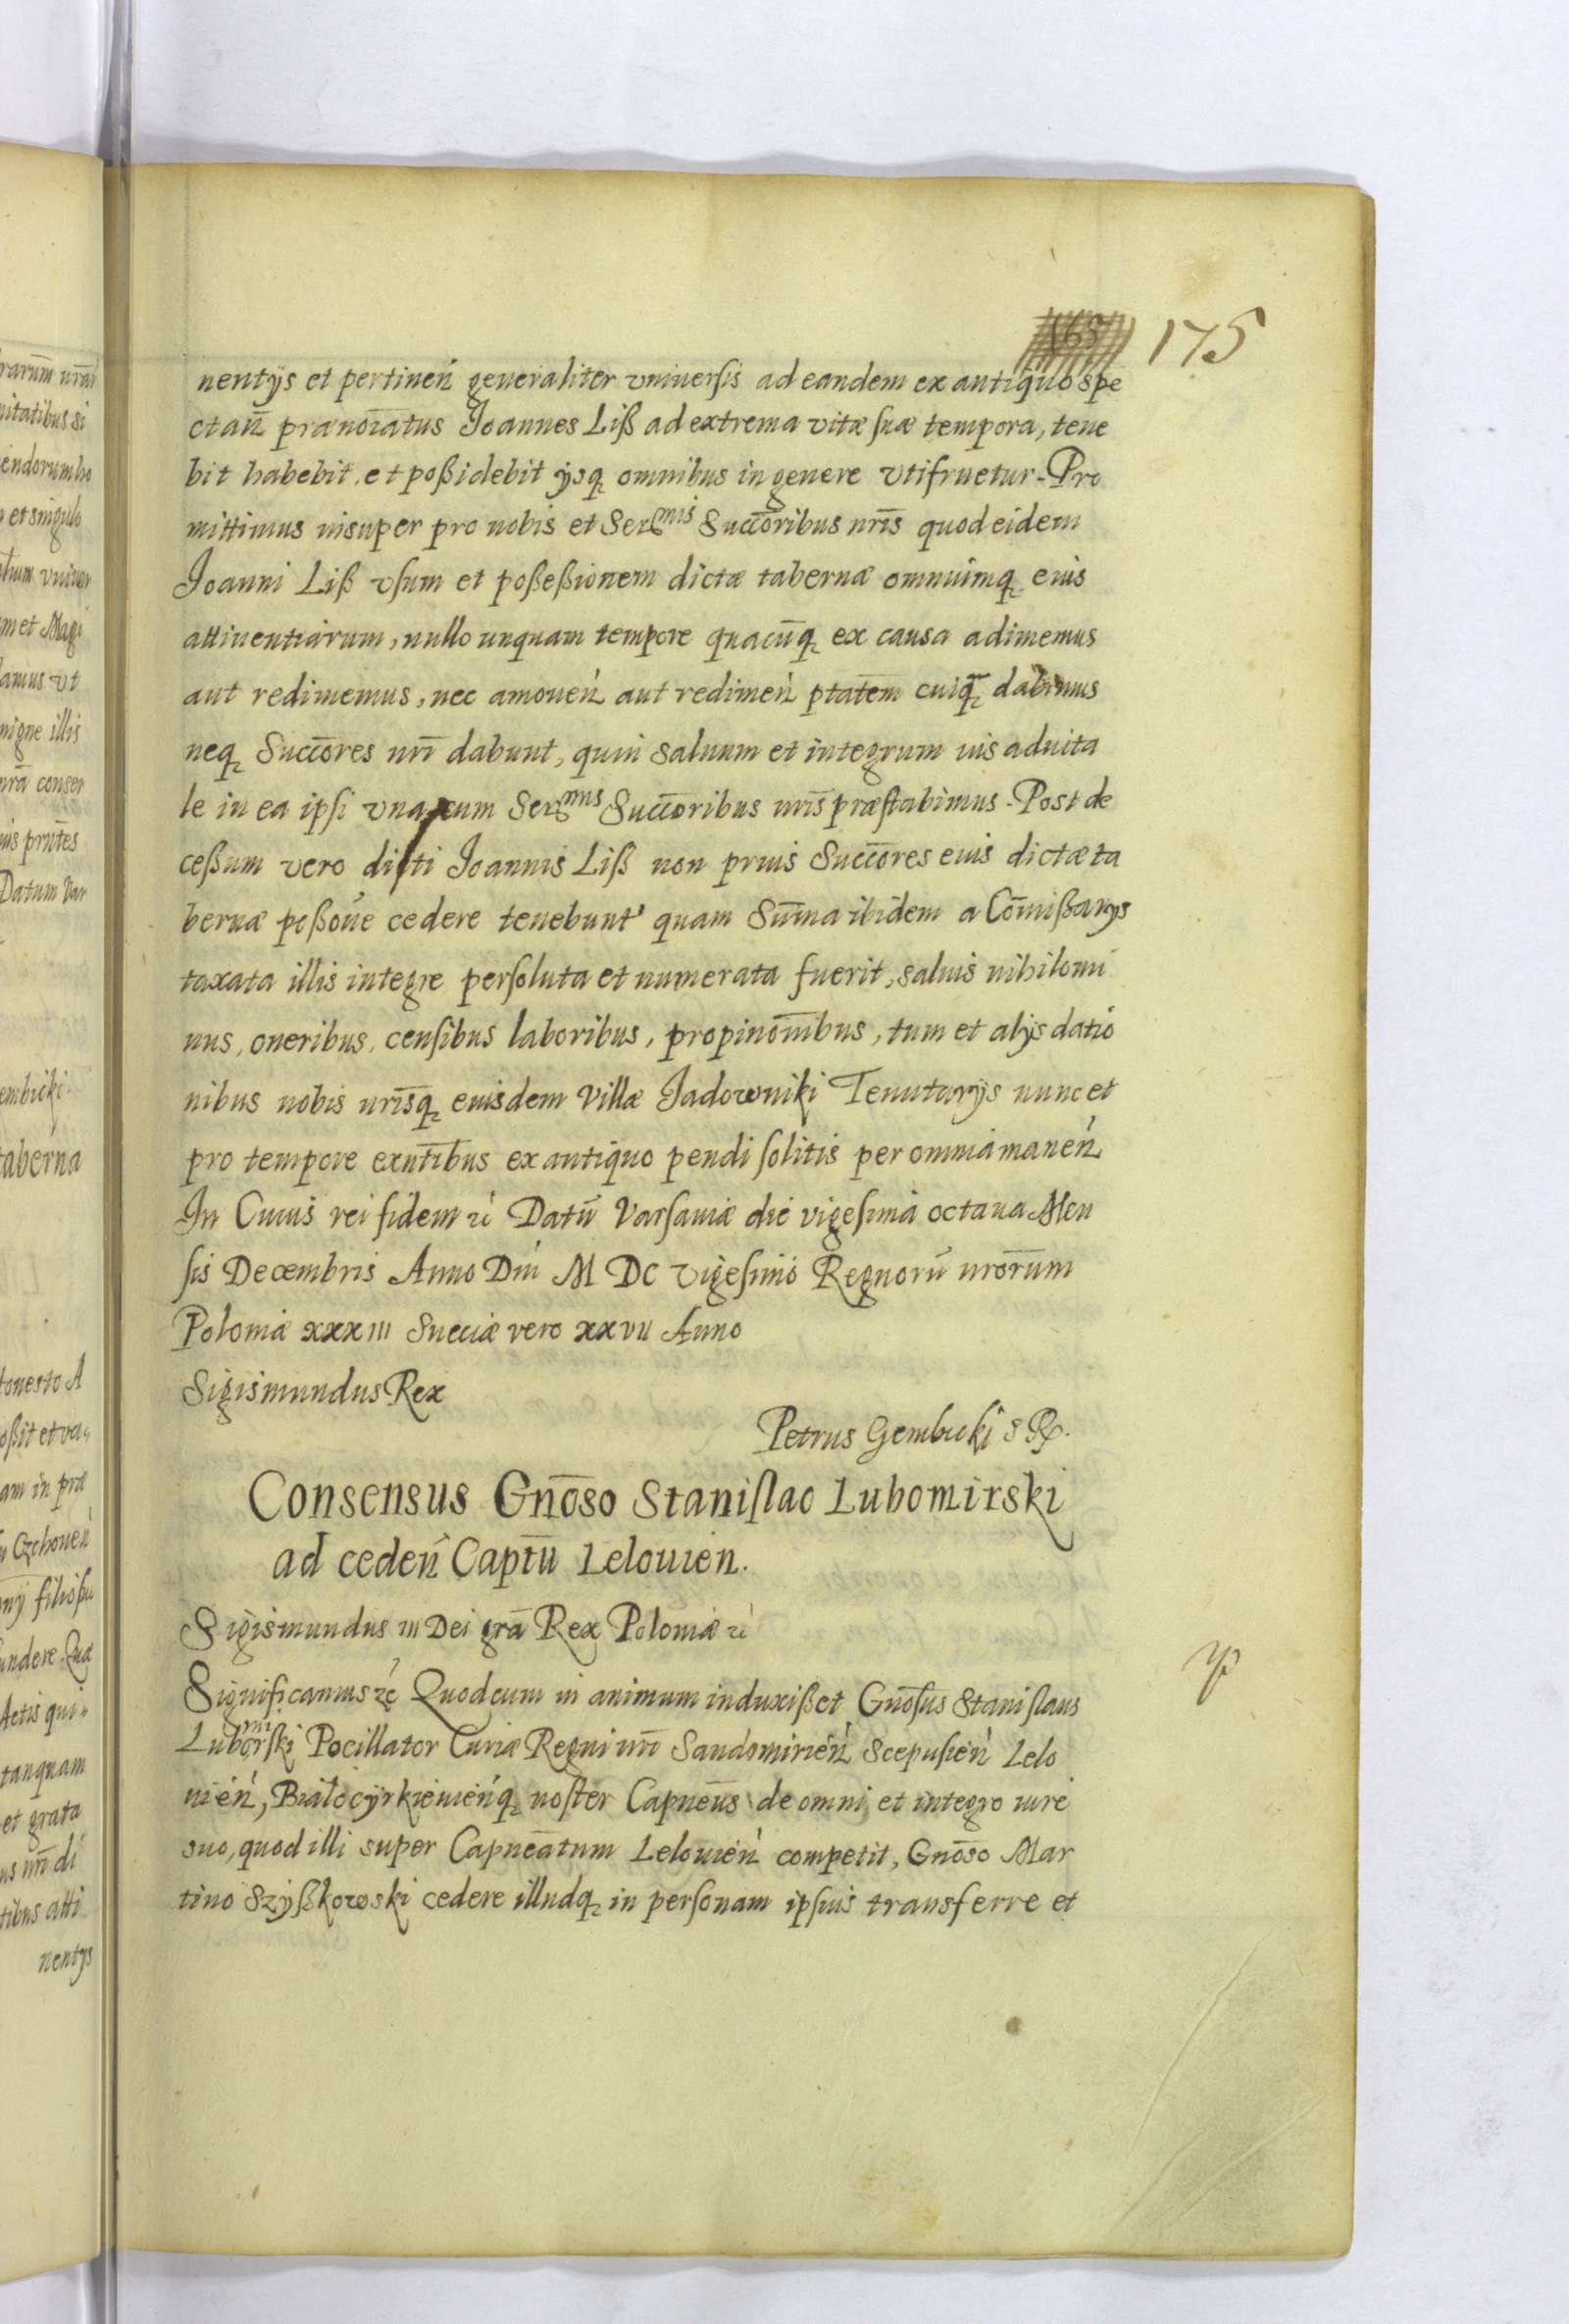 165 175
nentÿs et pertineń generaliter vniuersis ad eandem ex antiquo spe
ctan̄ prænoīatus Joannes Liß ad extrema vitæ suæ tempora, tene
bit habebit, et poßidebit ÿsq, omnibus in genere vtifruetur. Pro
mittimus insuper pro nobis et Sermis Succōribus nr̄is quod eidem
Joanni Liß vsum et poßeßionem dictæ tabernæ omniumq, eius
attinentiarum, nullo unquam tempore quacūq, ex causa adimemus
aut redimemus, nec amoueń aut redimeń ptāt̄em cuiq, dabimus
neq, Succōres nr̄i dabunt, quin saluum et integrum ius aduita
le in ea ipsi vna cum Sermis Succōribus nr̄is præstabimus. Post de
ceßum vero dicti Joannis Liß non prius Succōres eius dictæ ta
bernæ poßōne cedere tenebunt' quam Sum̄a ibidem a Com̄ißarÿs
taxata illis integre persoluta et numerata fuerit, saluis nihilomi
nus, oneribus, censibus laboribus, propinōnibus, tum et alÿs datio
nibus nobis nr̄isq, eiusdem Villæ Jadowniki Tenutarÿs nunc et
pro tempore exn̄tibus ex antiquo pendi solitis per omnia maneń
In Cuius rei fidem ꝛć Datū Varsauiæ die vigesima octaua Men
sis Decembris Anno Dn̄i M DC Vigesimo Regnorū nrōrum
Poloniæ xxxiii Sueciæ vero xxvii Anno
Sigismundus Rex
Petrus Gembicki S R.
Consensus Gn̄oso Stanislao Lubomirski
ad cedeń Captū Lelouien.
Sigismundus III Dei grā Rex Poloniæ ꝛć
Significamus ꝛć Quod cum in animum induxißet Gn̄osus Stanislaus
Lubomirski Pocillator Curiæ Regni nr̄i Sandomirień Scepusień Lelo
uień, Białocÿrkieuieńq, noster Capnēus de omni et integro iure
suo, quod illi super Capneātum Lelouień competit, Gnōso Mar
tino Szÿßkowski cedere illudq, in personam ipsius transferre et